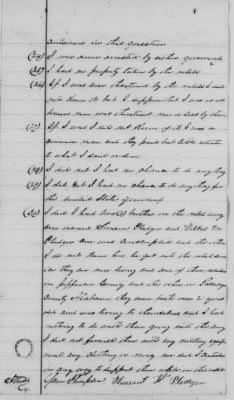 contained in this question
(24) I was never arrested by either government
(25) I had no property taken by the rebels
(26) If I was ever threatened by the rebels I
not know it but I suppose that I was as all
Union men was threatened more or less by them
(27) If I was I did not know of it I was a
common man and they paid but little attention
to what I said or done
(28) I did not I had no chance to do anything
(29) I did not I had no chance to do anything for
the United States Government
(30) I did I had two brothers in the rebel army
one named Pledger and
Pledger one was and the other
I do not know how he got into the rebel
in they are now living and one of them resides
in Jefferson County and the other in
County Alabama, they were both over 21 years
old and was living to themselves and I had
nothing to do with them going into the army
I did not furnish them with any military equipments
any clothing or money nor did I contribute
in any way to support them while in the rebel
Attest Pledger